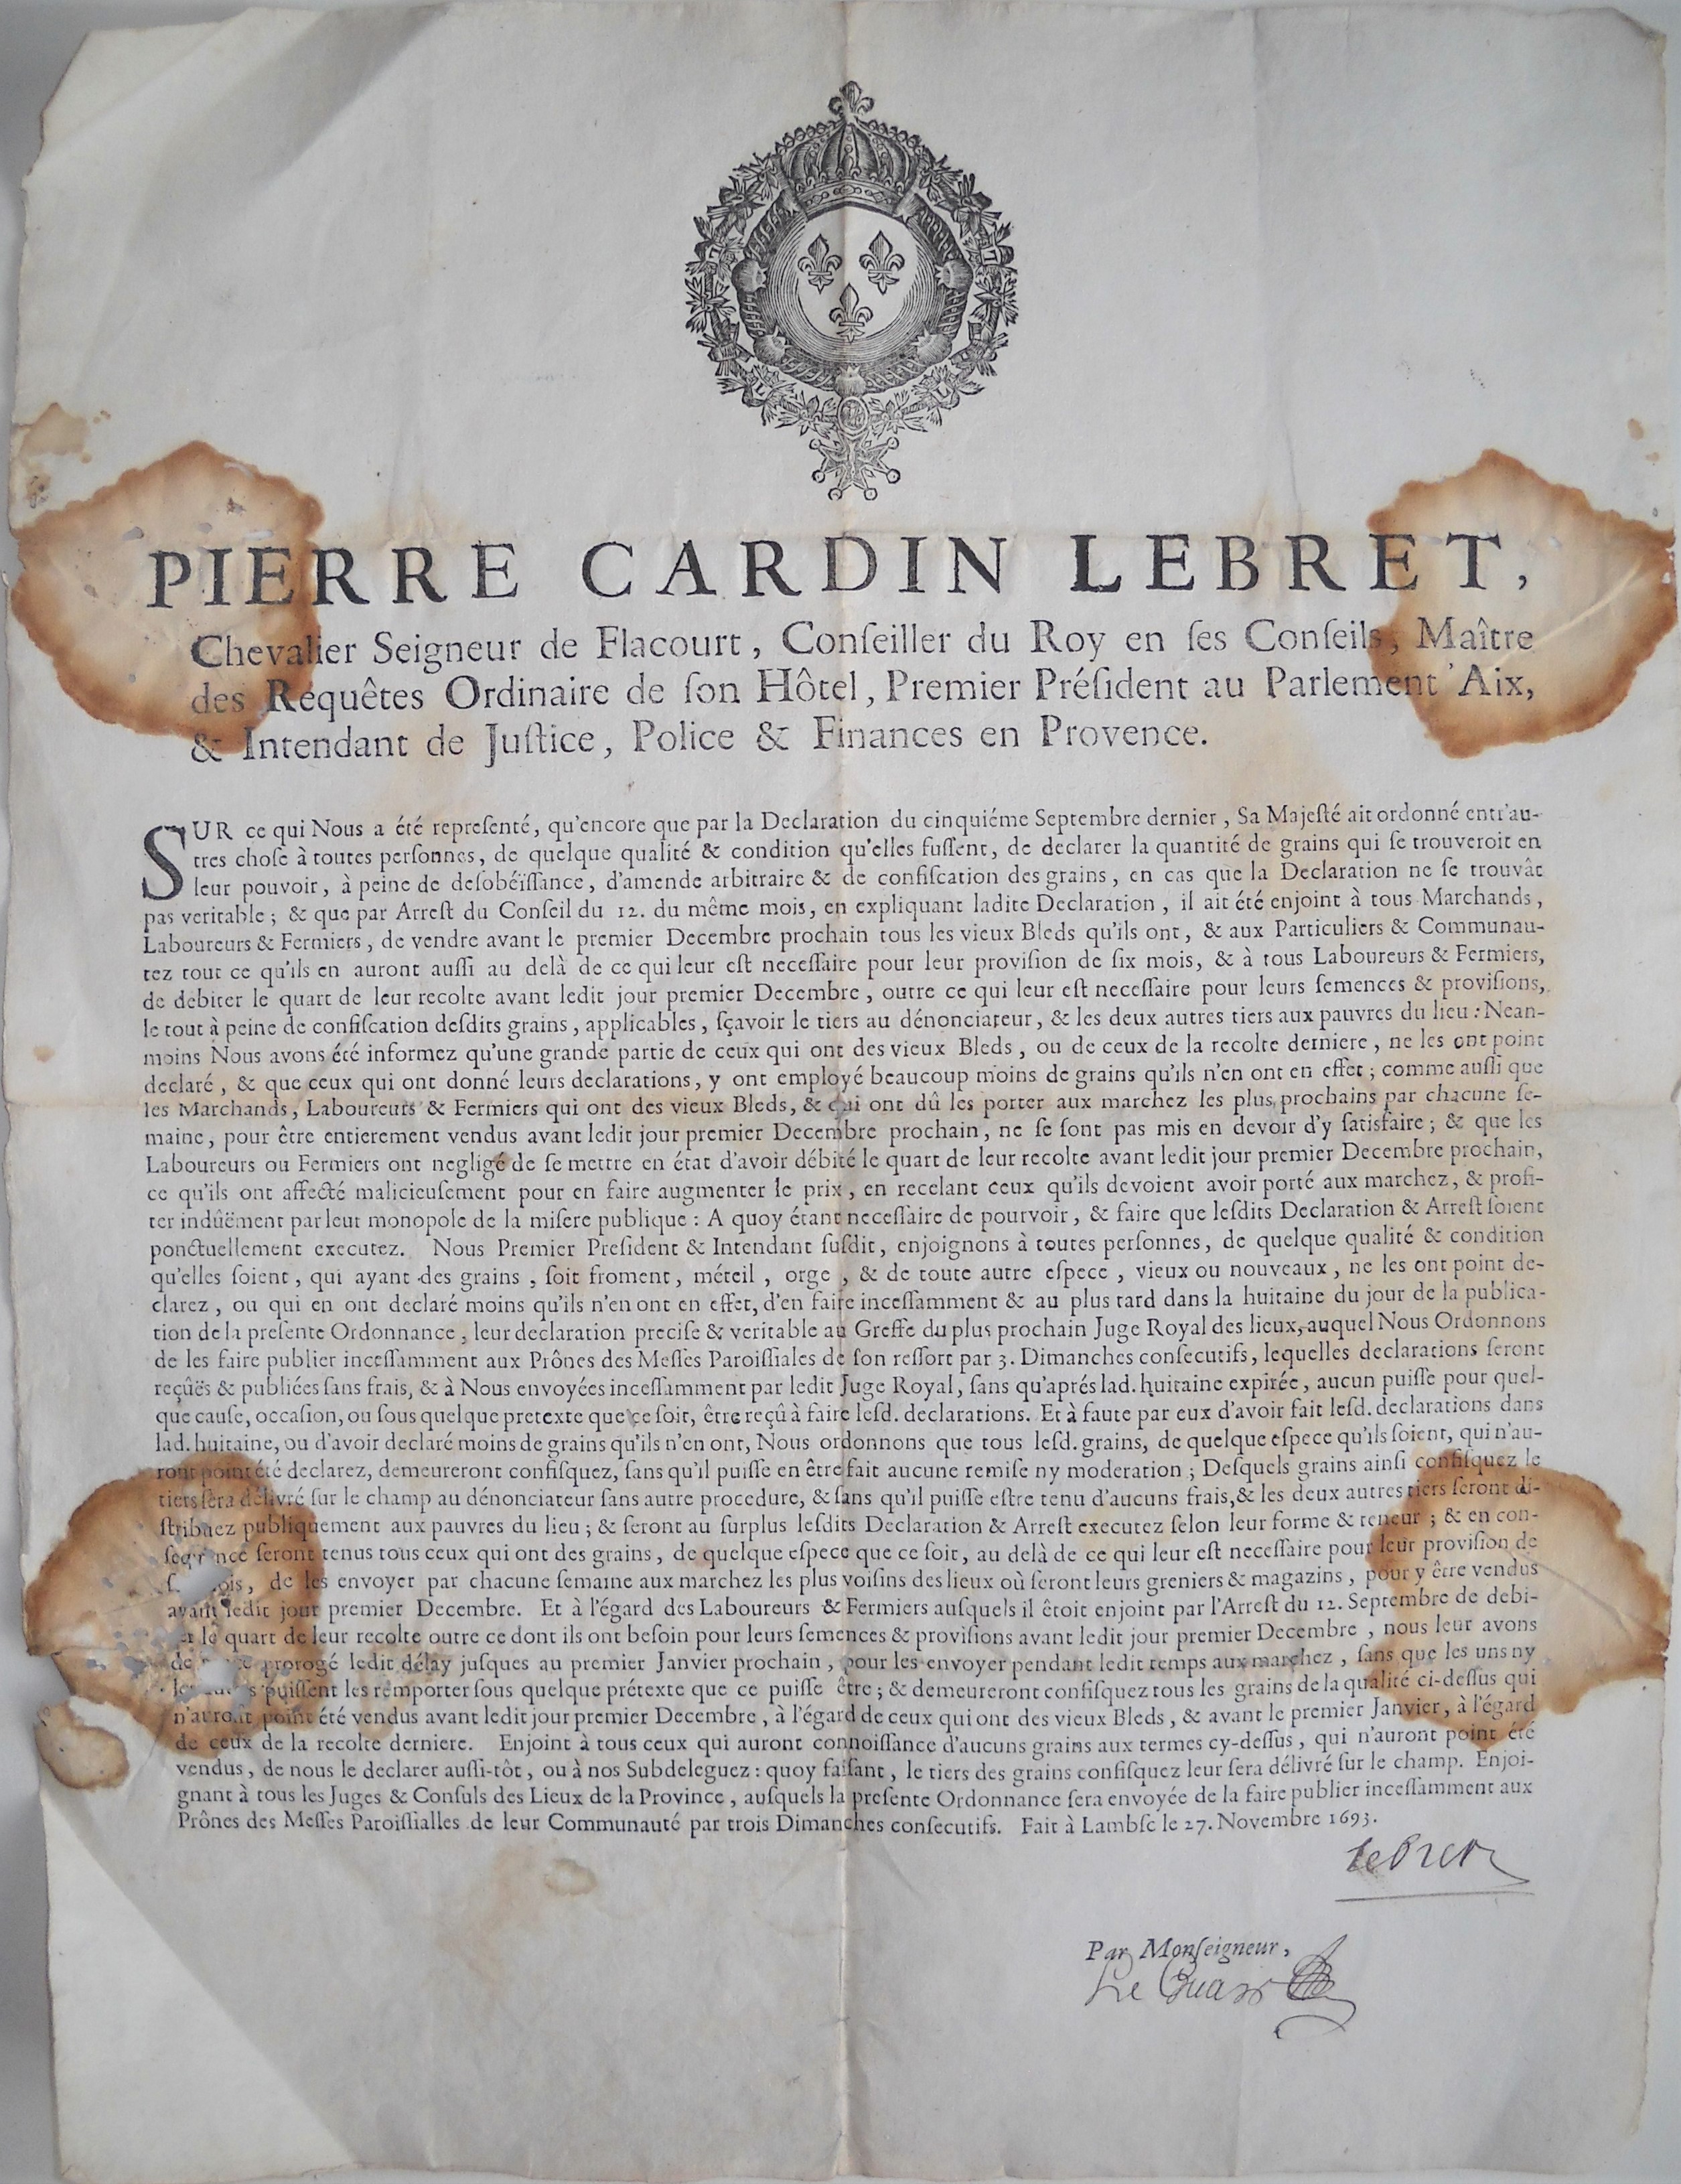 PIERRE CARDIN LEBRET,
Chevalier Seigneur de Flacourt, Conſeiller du Roy en ſes Conſeils, Maître
des Requêtes Ordinaire de ſon Hôtel, Premier Préſident au Parlement 'Aix,
& Intendant de Juſtice, Police & Finances en Provence.
SUR ce qui Nous a été repreſenté, qu'encore que par la Declaration du cinquiéme Septembre dernier, Sa Majeſté ait ordonné entr'au-
tres choſe à toutes perſonnes, de quelque qualité & condition qu'elles fuſſent, de declarer la quantité de grains qui ſe trouveroit en
leur pouvoir, à peine de deſobéïſſance, d'amende arbitraire & de confiſcation des grains, en cas que la Declaration ne ſe trouvât
pas veritable; & que par Arreſt du Conſeil du 12. du même mois, en expliquant ladite Declaration, il ait été enjoint à tous Marchands,
Laboureurs & Fermiers, de vendre avant le premier Decembre prochain tous les vieux Bleds qu'ils ont, & aux Particuliers & Communau-
tez tout ce qu'ils en auront auſſi au delà de ce qui leur eſt neceſſaire pour leur proviſion de ſix mois, & à tous Laboureurs & Fermiers,
de debiter le quart de leur recolte avant ledit jour premier Decembre, outre ce qui leur eſt neceſſaire pour leurs ſemences & proviſions,
le tout à peine de confiſcation deſdits grains, applicables, ſçavoir le tiers au dénonciateur, & les deux autres tiers aux pauvres du lieu: Nean-
moins Nous avons été informez qu'une grande partie de ceux qui ont des vieux Bleds, ou de ceux de la recolte derniere, ne les ont point
declaré, & que ceux qui ont donné leurs declarations, y ont employé beaucoup moins de grains qu'ils n'en ont en effet; comme auſſi que
les Marchands, Laboureurs & Fermiers qui ont des vieux Bleds, & qui ont dû les porter aux marchez les plus prochains par chacune ſe-
maine, pour être entierement vendus avant ledit jour premier Decembre prochain, ne ſe ſont pas mis en devoir d'y ſatisfaire; & que les
Laboureurs ou Fermiers ont negligé de ſe mettre en état d'avoir débité le quart de leur recolte avant ledit jour premier Decembre prochain,
ce qu'ils ont affecté malicieuſement pour en faire augmenter le prix, en recelant ceux qu'ils devoient avoir porté aux marchez, & profi-
ter indûëment par leur monopole de la miſere publique: A quoy étant neceſſaire de pourvoir, & faire que leſdits Declaration & Arreſt ſoient
ponctuellement executez. Nous Premier Preſident & Intendant ſuſdit, enjoignons à toutes perſonnes, de quelque qualité & condition
qu'elles ſoient, qui ayant des grains, ſoit froment, méteil, orge, & de toute autre eſpece, vieux ou nouveaux, ne les ont point de-
clarez, ou qui en ont declaré moins qu'ils n'en ont en effet, d'en faire inceſſamment & au plus tard dans la huitaine du jour de la publica-
tion de la preſente Ordonnance, leur declaration preciſe & veritable au Greffe du plus prochain Juge Royal des lieux, auquel Nous Ordonnons
de les faire publier inceſſamment aux Prônes des Meſſes Paroiſſiales de ſon reſſort par 3. Dimanches conſecutifs, lequelles declarations ſeront
reçûës & publiées ſans frais, & à Nous envoyées inceſſamment par ledit Juge Royal, ſans qu'aprés lad. huitaine expirée, aucun puiſſe pour quel-
que cauſe, occaſion, ou ſous quelque pretexte que ce ſoit, être reçû à faire leſd. declarations. Et à faute par eux d'avoir fait leſd. declarations dans
lad. huitaine, ou d'avoir declaré moins de grains qu'ils n'en ont, Nous ordonnons que tous leſd. grains, de quelque eſpece qu'ils ſoient, qui n'au-
ront point été declarez, demeureront confiſquez, ſans qu'il puiſſe en être fait aucune remiſe ny moderation; Deſquels grains ainſi confiſquez le
tiers ſera délivré ſur le champ au dénonciateur ſans autre procedure, & ſans qu'il puiſſe eſtre tenu d'aucuns frais, & les deux autres tiers ſeront di-
ſtribuez publiquement aux pauvres du lieu; & ſeront au ſurplus leſdits Declaration & Arreſt executez ſelon leur forme & teneur; & en con-
ſeront tenus tous ceux qui ont des grains, de quelque eſpece que ce ſoit, au delà de ce qui leur eſt neceſſaire pour leur proviſion de
de les envoyer par chacune ſemaine aux marchez les plus voiſins des lieux où ſeront leurs greniers & magazins, pour y être vendus
avant ledit jour premier Decembre. Et à l'égard des Laboureurs & Fermiers auſquels il êtoit enjoint par l'Arreſt du 12. Septembre de debi-
le quart de leur recolte outre ce dont ils ont beſoin pour leurs ſemences & proviſions avant ledit jour premier Decembre, nous leur avons
prorogé ledit délay juſques au premier Janvier prochain, pour les envoyer pendant ledit temps aux marchez, ſans que les uns ny
puiſſent les remporter ſous quelque prétexte que ce puiſſe être; & demeureront confiſquez tous les grains de la qualité ci-deſſus qui
n'auront point été vendus avant ledit jour premier Decembre, à l'égard de ceux qui ont des vieux Bleds, & avant le premier Janvier, à l'égard
de ceux de la recolte derniere. Enjoint à tous ceux qui auront connoiſſance d'aucuns grains aux termes cy-deſſus, qui n'auront point été
vendus, de nous le declarer auſſi-tôt, ou à nos Subdeleguez: quoy faiſant, le tiers des grains confiſquez leur ſera délivré ſur le champ. Enjoi-
gnant à tous les Juges & Conſuls des Lieux de la Province, auſquels la preſente Ordonnance ſera envoyée de la faire publier inceſſamment aux
Prônes des Meſſes Paroiſſialles de leur Communauté par trois Dimanches conſecutifs. Fait à Lambſc le 27. Novembre 1693.
lebret
Par Monſeigneur,